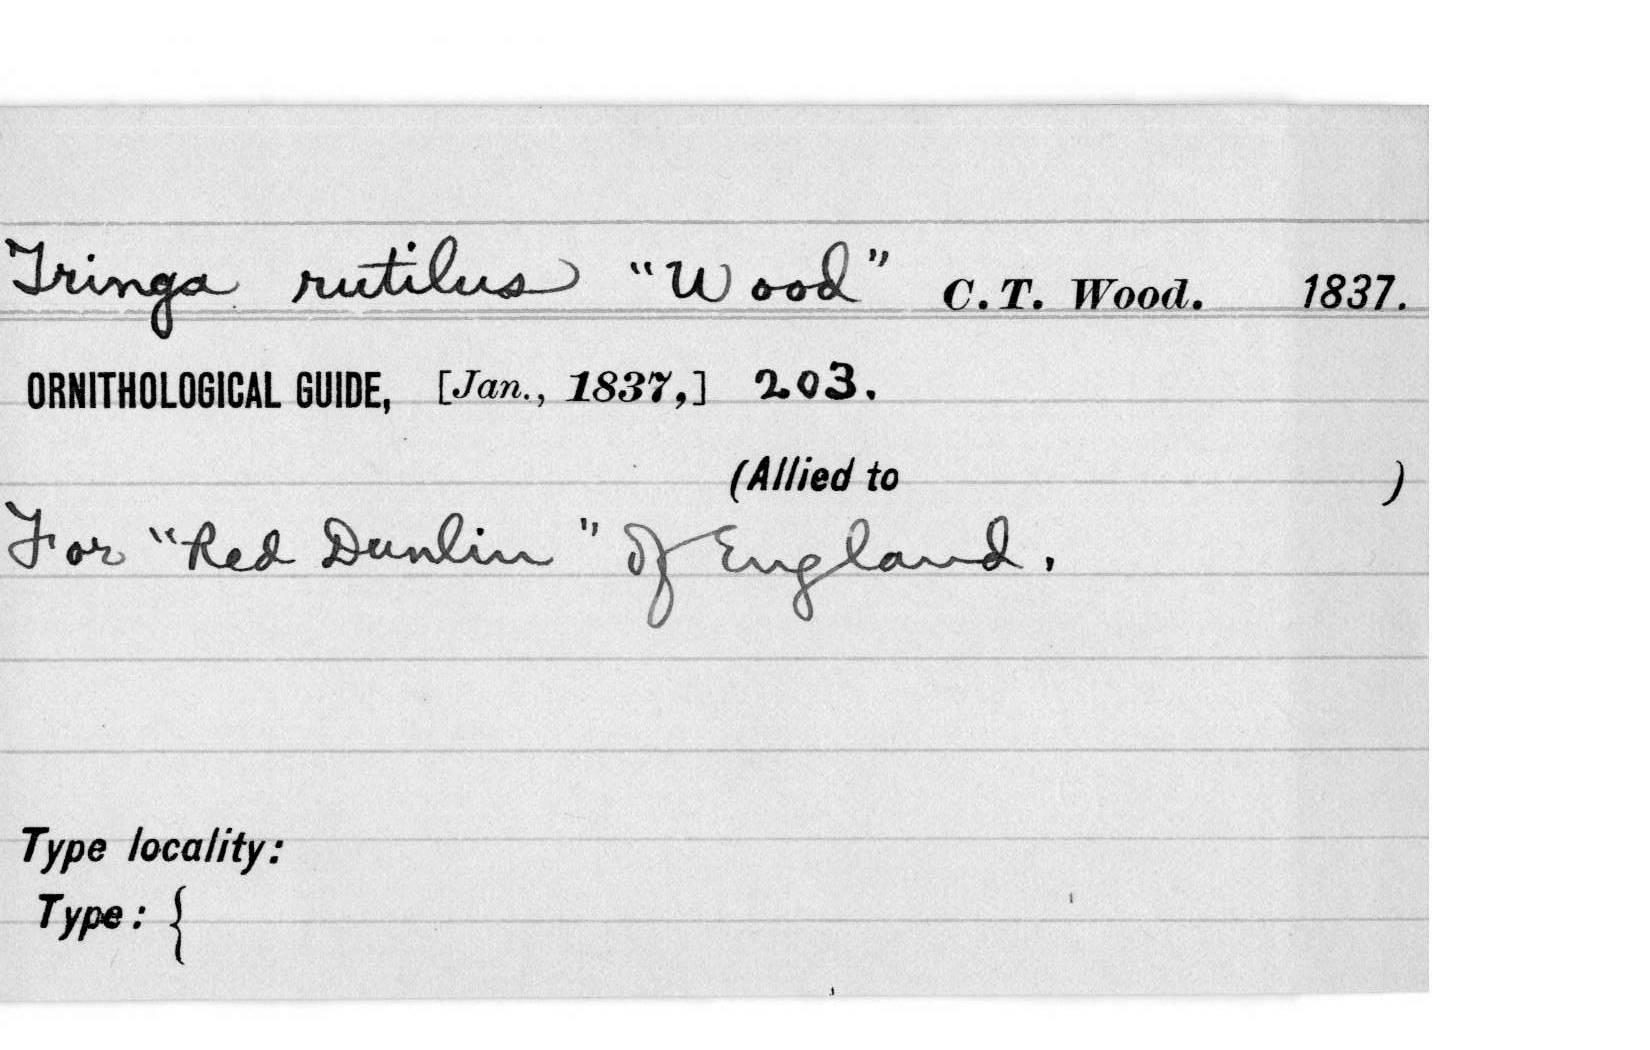 Tringa rutilus "Wood" C. T. Wood. 1837.
ORNITHOLOGICAL GUIDE, [Jan., 1837,] 203.
(Allied to )
For "Red Dunlin" of England.
Type locality:
Type: {